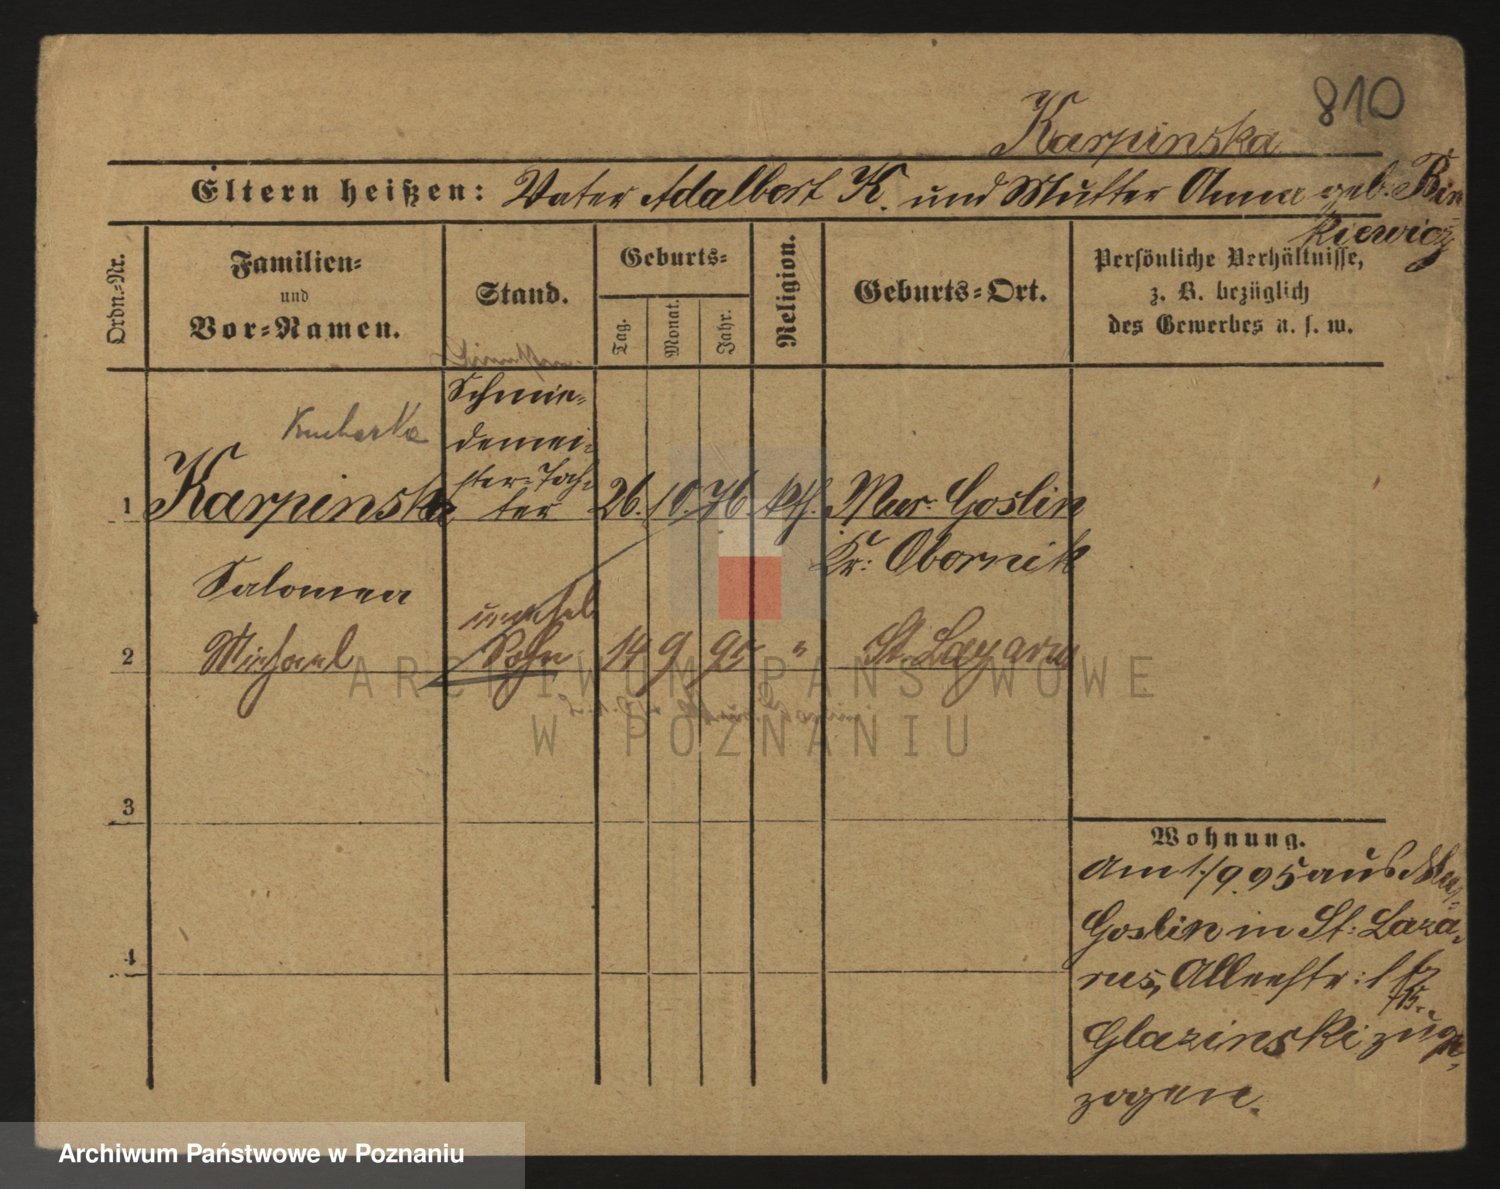 810
Karpinska
Eltern heißen: Vater Adalbert K. und Mutter Anna geb. Bin
kiewicz
Ordn.-Nr.
Familien-
und
Vor-Namen.
Stand.
Geburts-
Tag.
Monat.
Jahr.
Religion.
Geburts-Ort.
Persönliche Verhältnisse,
z. B. bezüglich
des Gewerbes u. s. w.
Kucharka
Schmie-
demei-
ster-Toch-
ter
1 Karpinska 26. 10. 76. kth. Mur. Goslin
Kr: Obornik
Salomea
unehel.
2 Michael Sohn 14 9 95 " St. Lazarus
3
4
Wohnung.
Am 1./9 95 aus Mur.
Goslin in St: Laza-
rus, Alleestr:
Glazinski zuge-
zogen.
ARCHIWUM PAŃSTWOWE
W POZNANIU
Archiwum Państwowe w Poznaniu